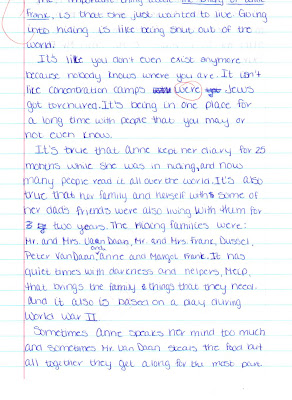 important thing about the diary of anne
frank, is that she just wanted to live. Going
into hiding is like being shut out of the
world.
It's like you don't even exist anymore
because nobody knows where you are. It isn't
like concentration camps were Jews
got torchured. It's being in one place for
a long time with people that you may or
not even know.
It's true that Anne kept her diary for 25
months while she was in hiding, and now
many people read it all over the world. It's also
true that her family and herself with some of
her dads friends were also living with them for
two years. The hiding families were:
Mr. and Mrs. Van Daan, Mr. and Mrs. Frank, Dussel,
Peter Van Daan, and Anne and Margot Frank. It has
quiet times with darkness and helpers, Miep,
that brings the family & things that they need.
And it also is based on a play during
World War II
Sometimes Anne speaks her mind too much
and sometimes Mr. Van Daan steals the food but
all together they get along for the most part.